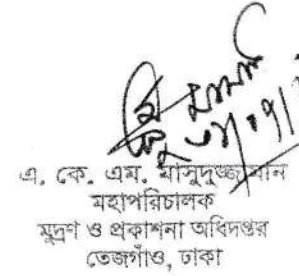 এ, কে, এম, মাসুদুজ্জামান
মহাপরিচালক
মুদ্রণ ও প্রকাশনা অধিদপ্তর
তেজগাঁও, ঢাকা